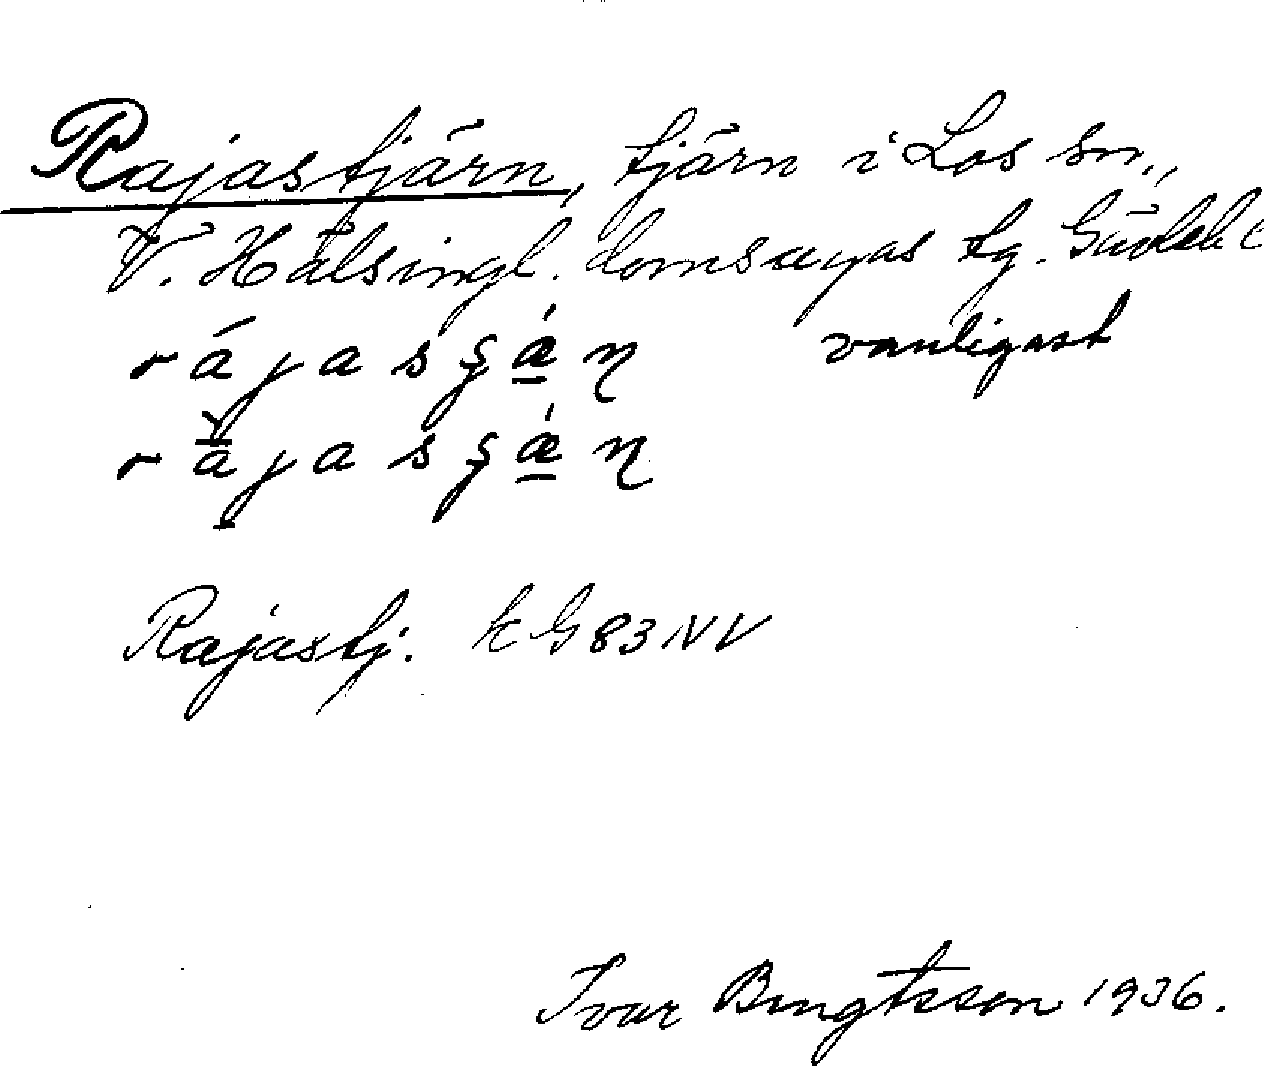 Rajastjärn, tjärn i Los sn.,
V. Hälsingl. domsagas tg. Gävleb
rájasşǽη vanligast
rájasşǽη
Rajastj. EG83NV
Ivar Bengtsson 1936.